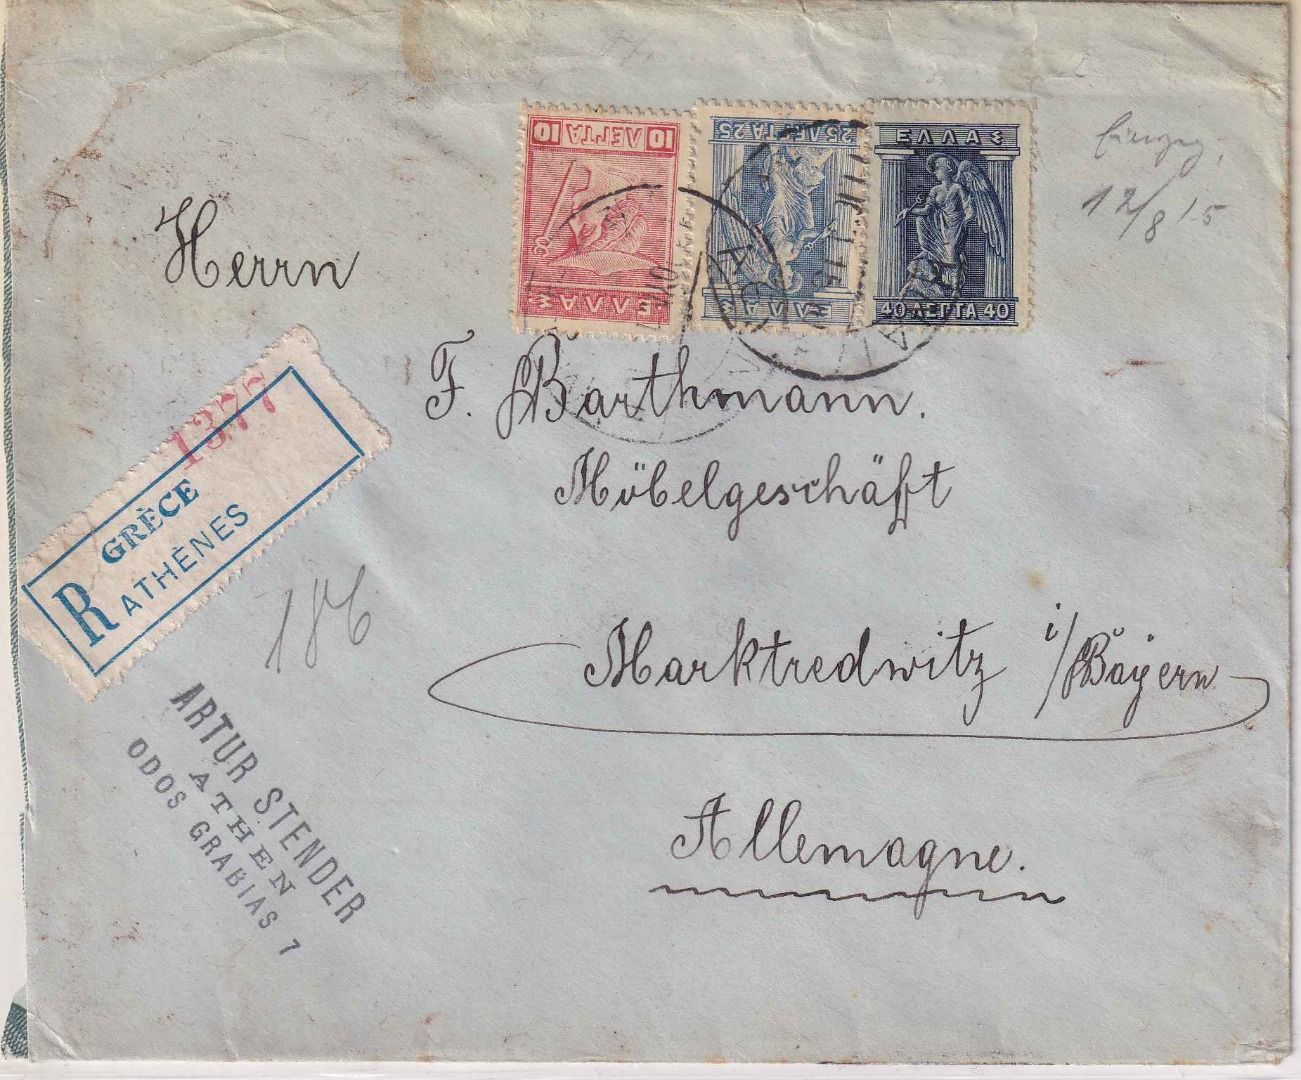 10 ΛΕΠΤΑ 10
ΕΛΛΑΣ
25 ΛΕΠΤΑ 25
ΕΛΛΑΣ
ΕΛΛΑΣ
40 ΛΕΠΤΑ 40
12/8 15
Herrn
F. Barthmann.
Möbelgeschäft
Marktredwitz i/Bayern
Allemagne.
1377
R GRÈCE
ATHÈNES
186
ARTUR STENDER
ATHEN
ODOS GRABIAS 7